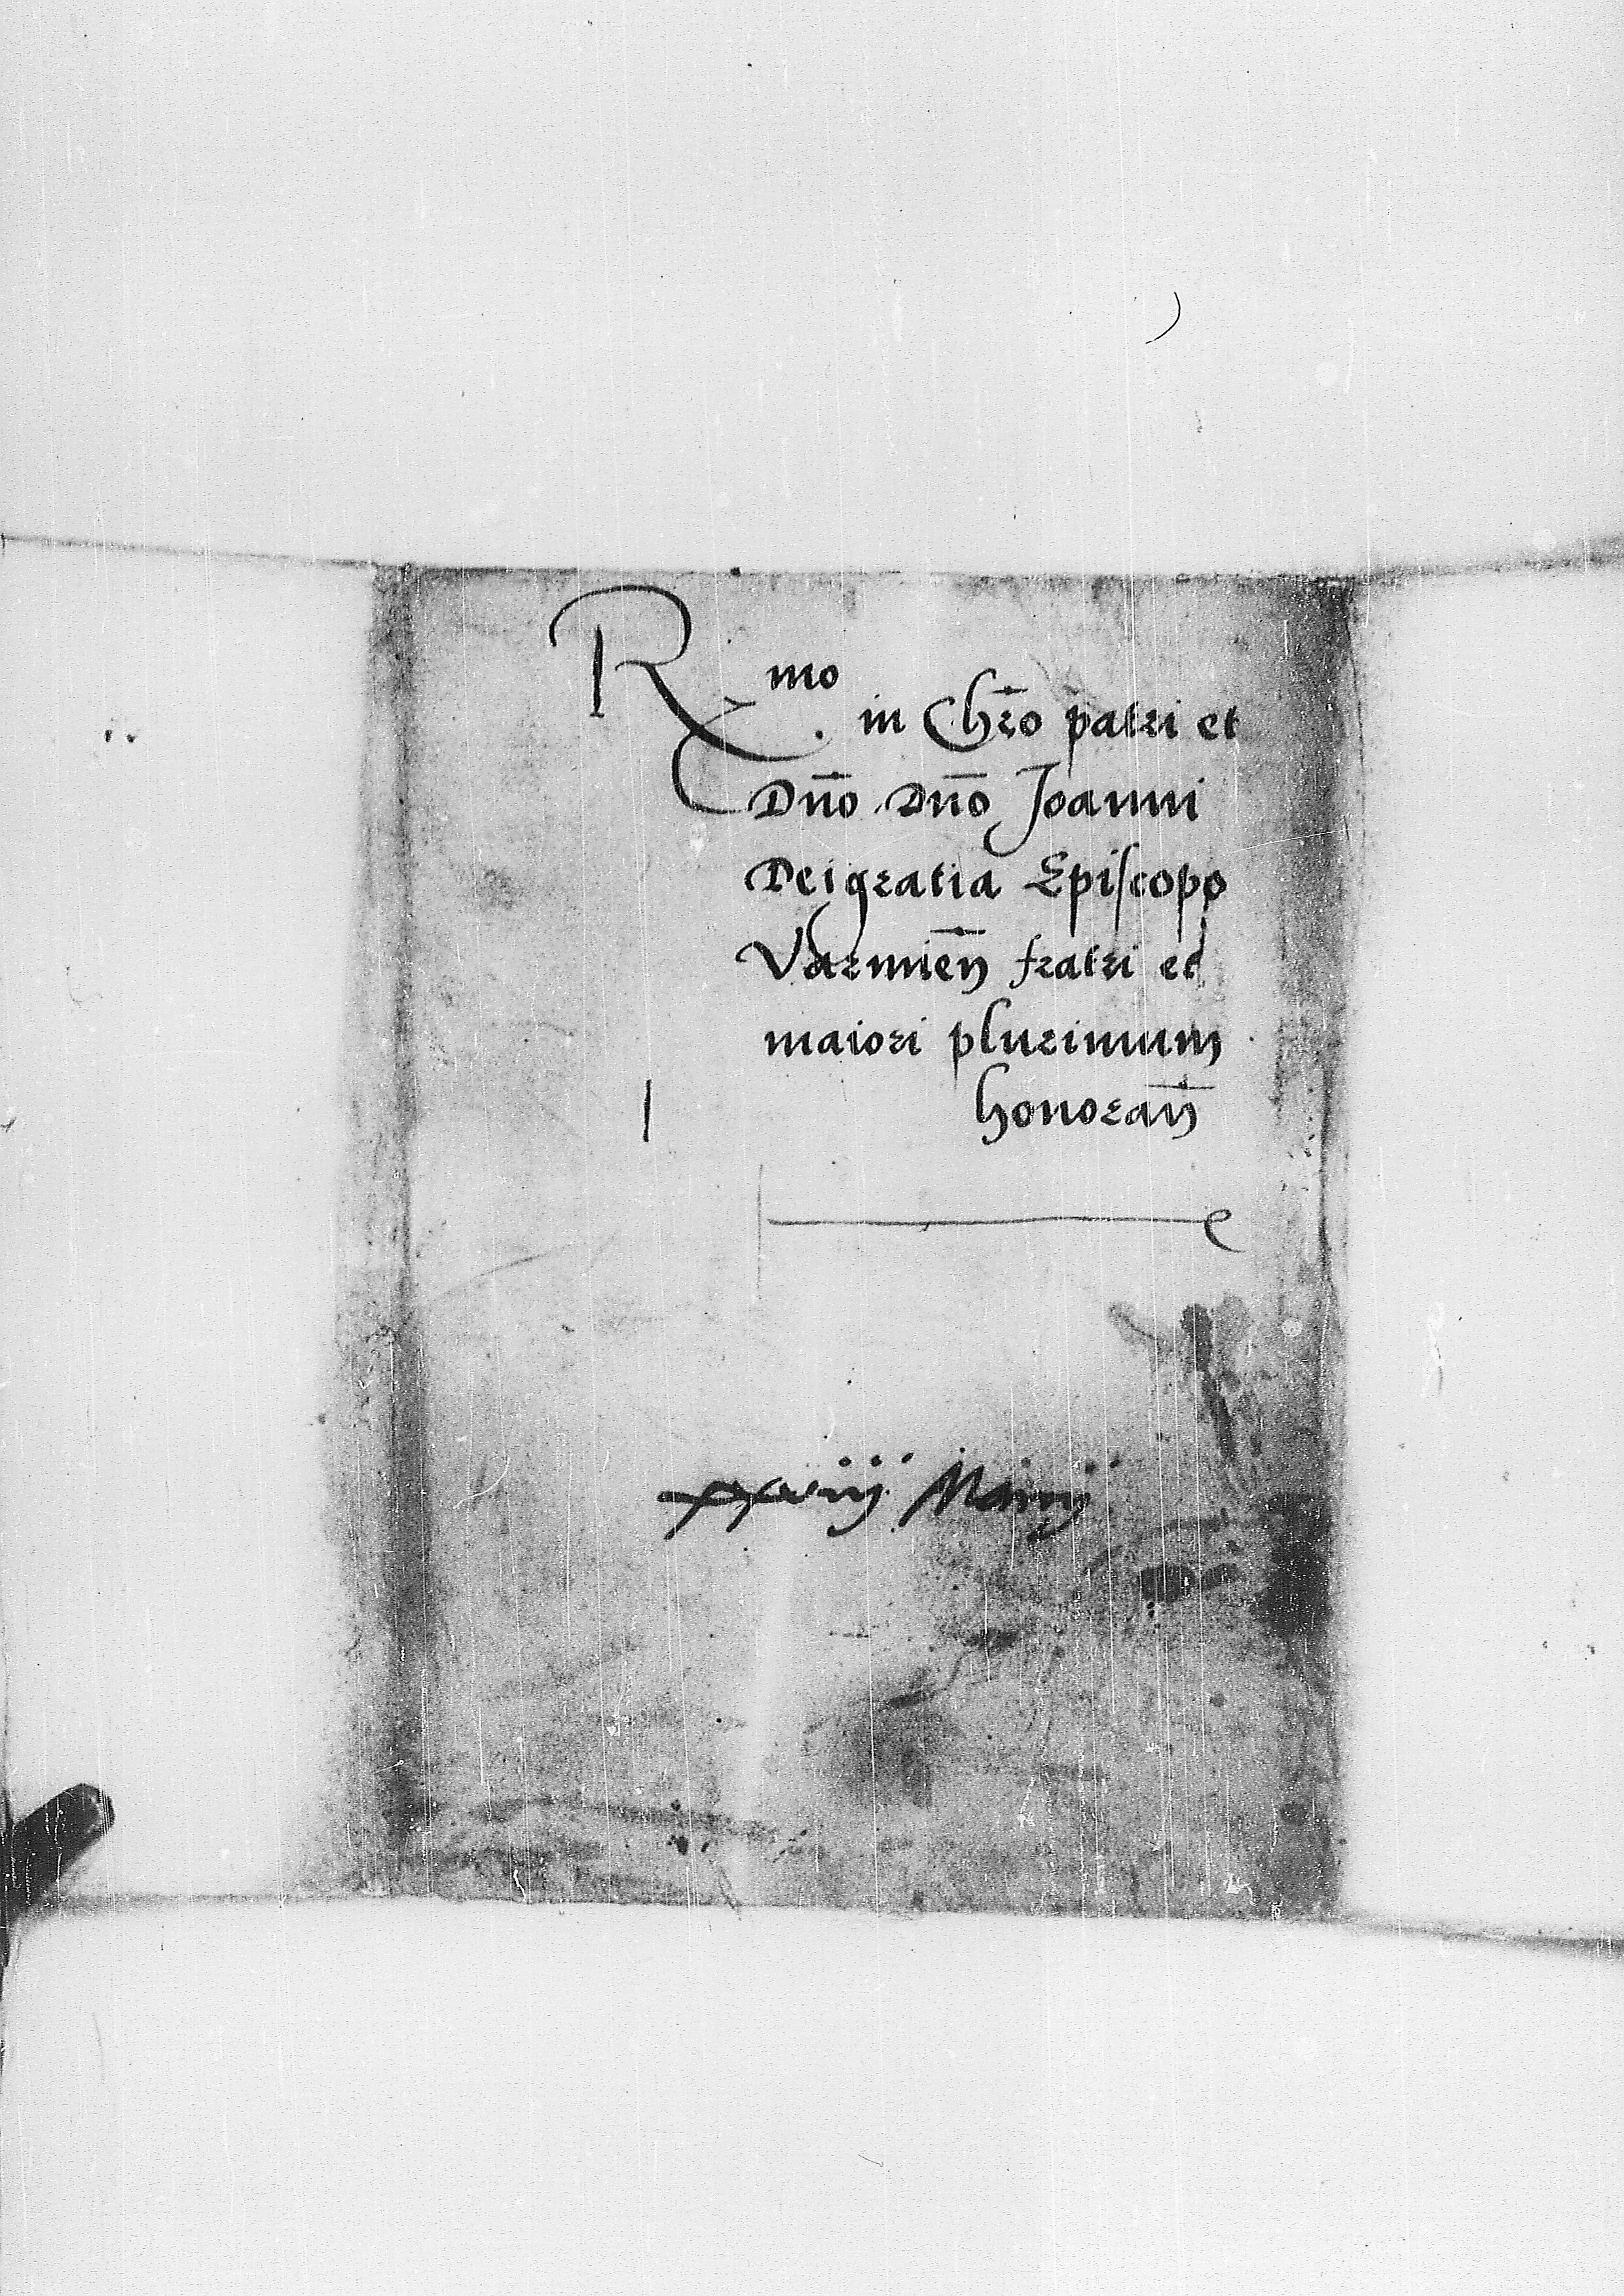 Rmo. in Chr̄o patri et
Dn̄o Dn̄o Joanni
Dei gratia Episcopo
Varmien̄ fratri et
maiori plurimum
honoran̄
xxviij Maij